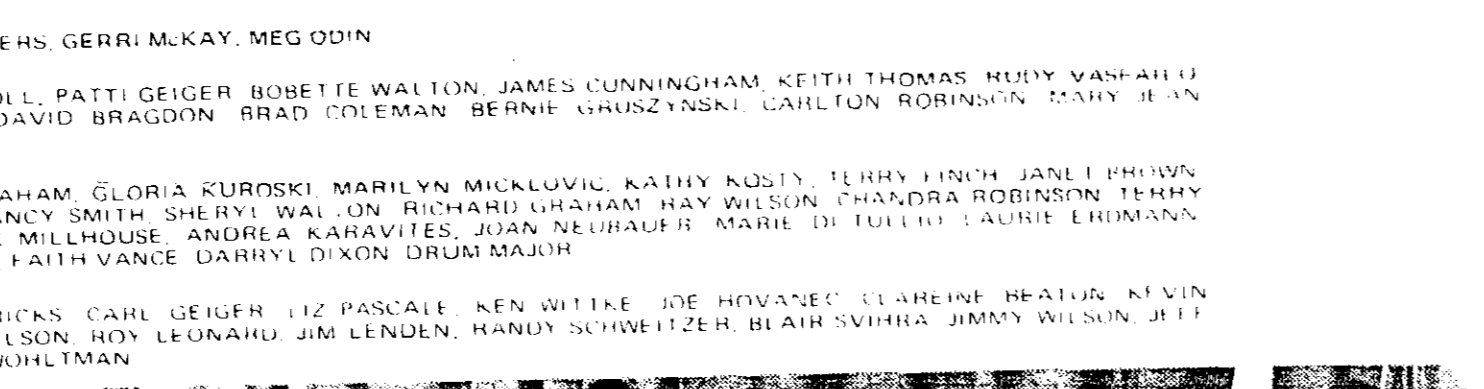 ERS, GERRI McKAY, MEG ODIN
OLL, PATTI GEIGER BOBETTE WALTON, JAMES CUNNINGHAM, KEITH THOMAS RUDY
DAVID BRAGDON BRAD COLEMAN BERNIE GRUSZYNSKI, CARLTON ROBINSON MARY JEAN
AHAM, GLORIA KUROSKI, MARILYN MICKLOVIC, KATHY KOSTY, TERRY FINCH JANET BROWN
ANCY SMITH, SHERYL WALTON RICHARD GRAHAM RAY WILSON CHANDRA ROBINSON TERRY
MILLHOUSE, ANDREA KARAVITES, JOAN NEUBAUER MARIE DI TULLIO LAURIE ERDMANN
FAITH VANCE DARRYL DIXON DRUM MAJOR
RICKS CARL GEIGER LIZ PASCALE, KEN WITTKE JOE HOVANEC CLAREINE BEATON KEVIN
LSON, ROY LEONARD, JIM LENDEN, RANDY SCHWEITZER, BLAIR SVIHRA JIMMY WILSON, JEFF
WOHLTMAN